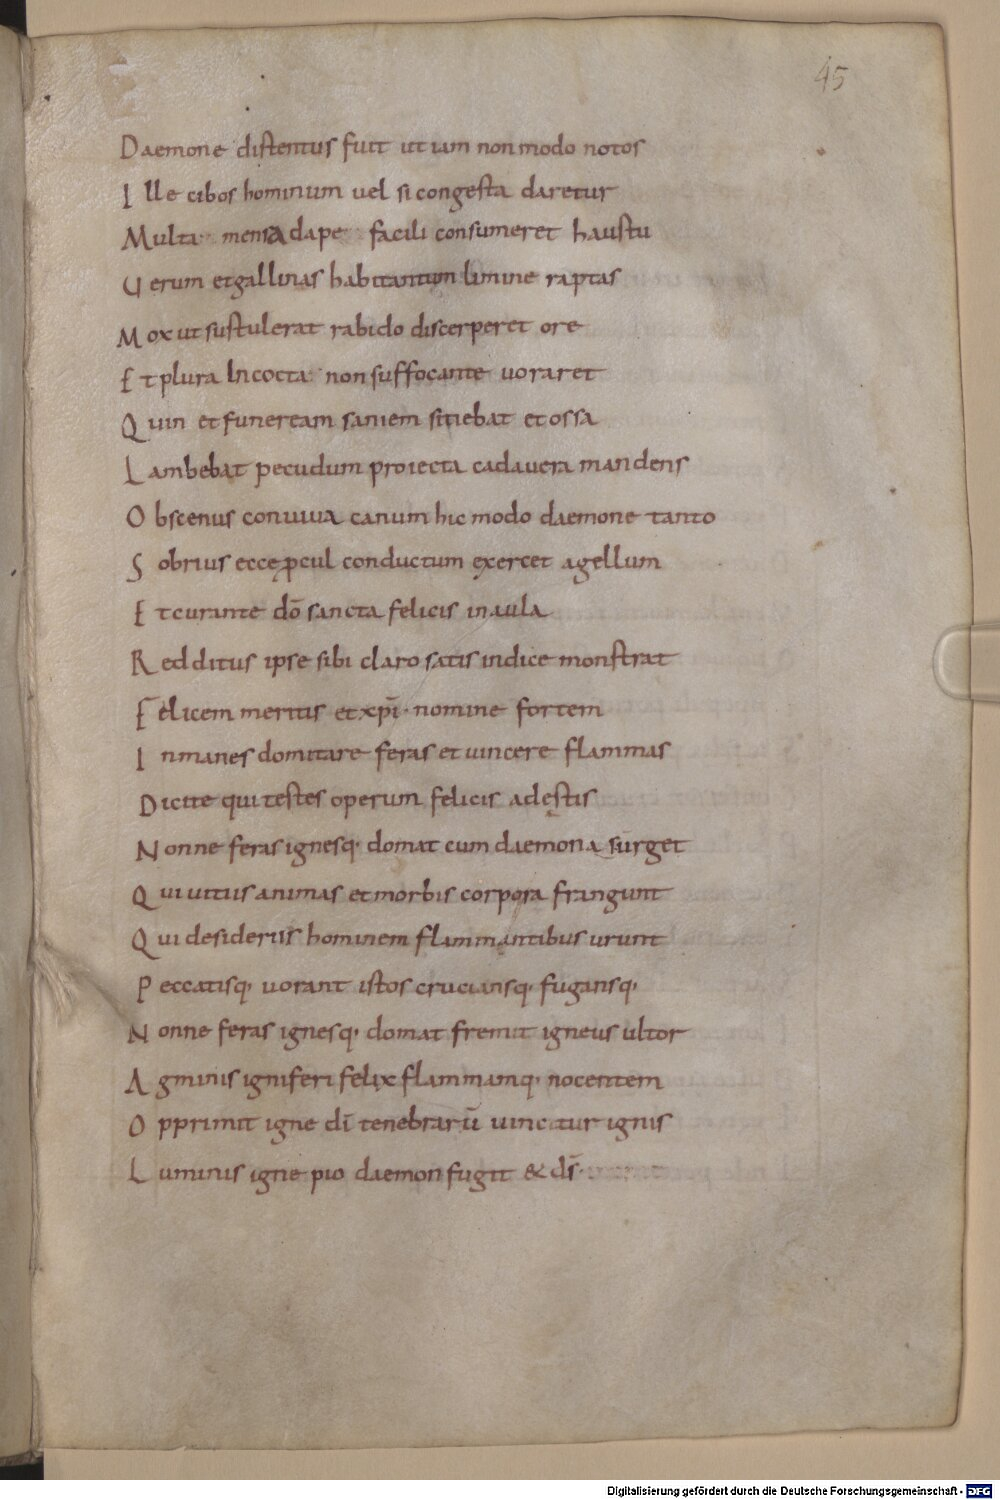 45
Daemone distentus fuit ut iam non modo notos
Ille cibos hominum vel si congesta daretur
Multa mensa dape facili consumeret haustu
Uerum et gallinas habitantum limine raptas
Mox ut sustulerat rabido discerperet ore
Et plura incocta non suffocante uoraret
Quin et funeream saniem sitiebat et ossa
Lambebat pecudum proiecta cadavera mandens
Obscenus conuiua canum hic modo daemone tanto
Sobrius ecce ꝓcul conductum exercet agellum
Et curante dō sancta felicis in aula
Redditus ipse sibi claro satis indice monstrat
Felicem meritis et xp̄i· nomine fortem
Inmanes domitare feras et uincere flammas
Dicite qui testes operum felicis adęstis
Nonne feras ignesq· domat cum daemona surget
Qui uitiis animas et morbis corpora frangunt
Qui desideriis hominem flammantibus urunt
Peccatisq· uorant istos cruciansq· fugansq·
Nonne feras ignesq· domat fremit igneus ultor
Agminis igniferi felix flammamq· nocentem
Opprimit igne dī tenebrarū uincitur ignis
Luminis igne pio daemon fugit & ds̄·
Digitalisierung gefördert durch die Deutsche Forschungsgemeinschaft - DFG